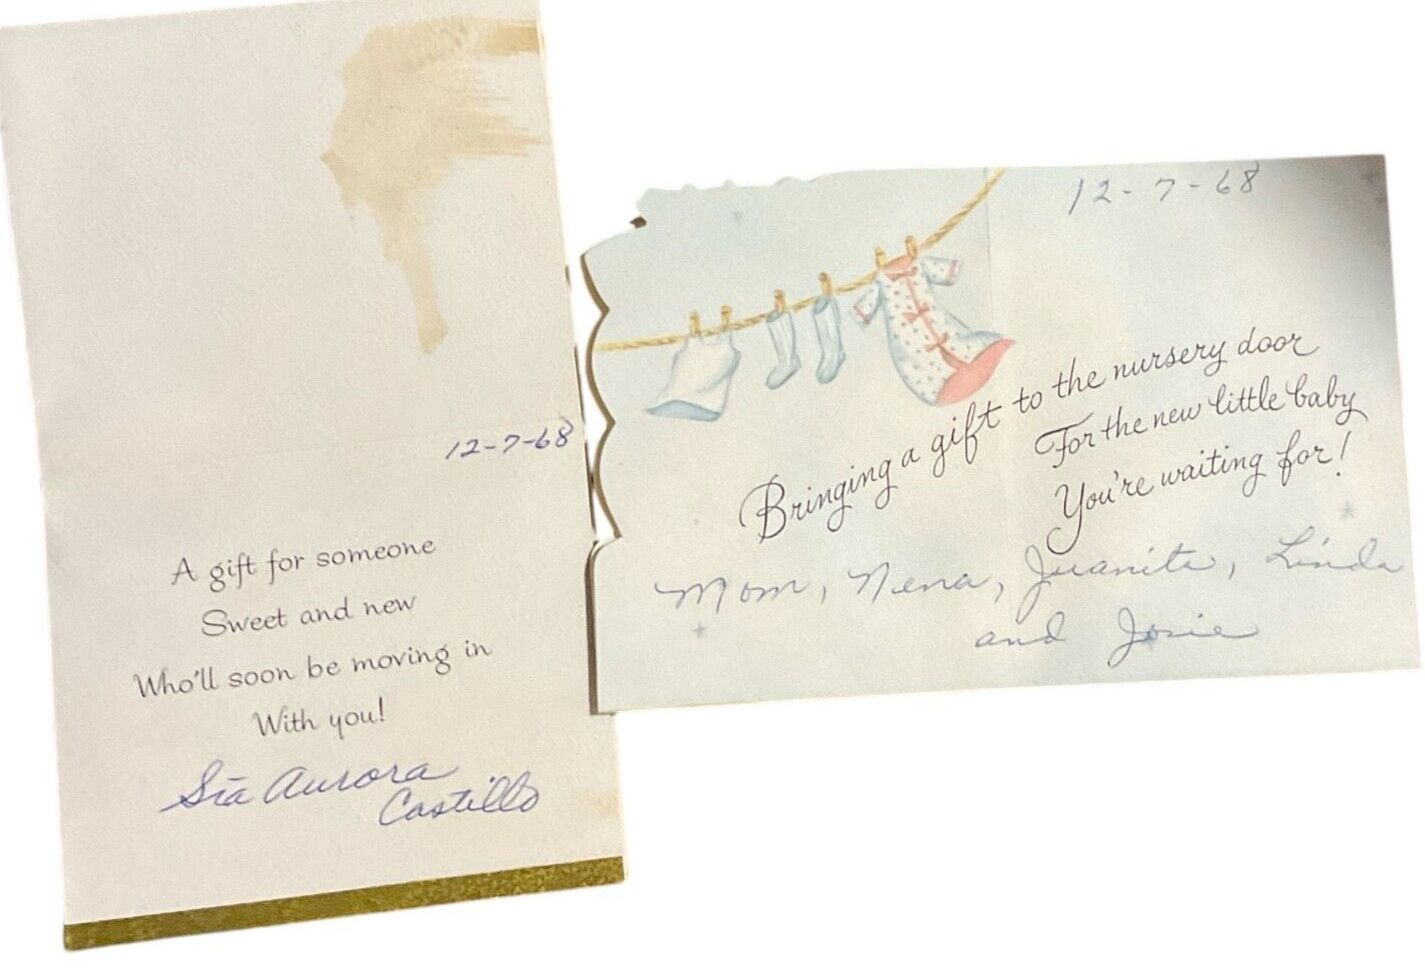 12-7-68
A gift for someone
Sweet and new
Who'll soon be moving in
With you!
Sra Aurora
Castillo
12-7-68
Bringing a gift to the nursery door
For the new little baby
You're waiting for!
Mom, Nena, Juanita, Linda
and Josie